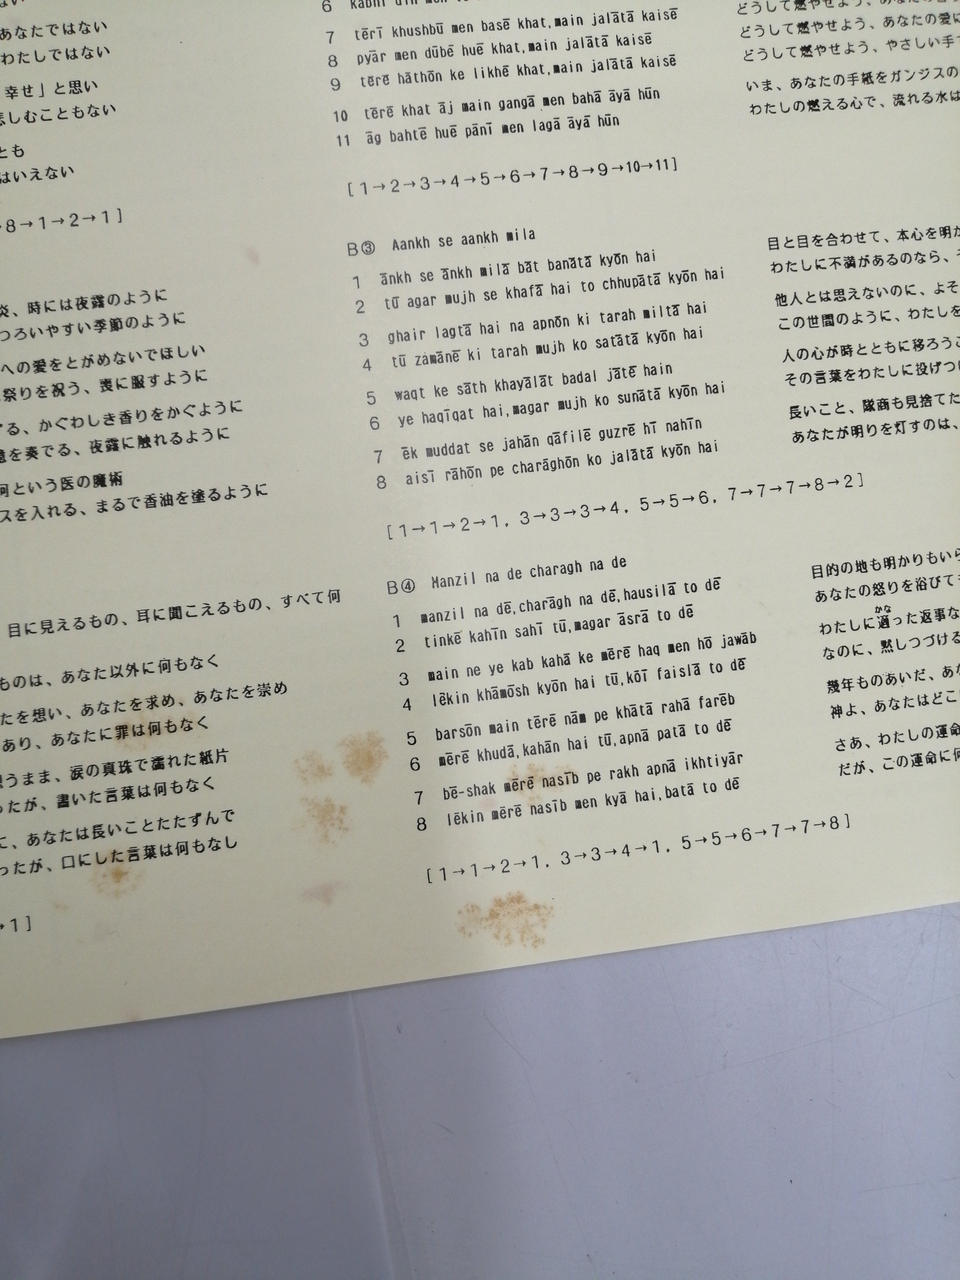 あなたではない
わたしではない
幸せ」と思い
悲しむこともない
とも
はいえない
→8→1→2→1]
炎、時には夜露のように
つろいやすい季節のように
への愛をとがめないでほしい
祭りを祝う、喪に服すように
る、かぐわしき香りをかぐように
を奏でる、夜露に触れるように
何という医の魔術
スを入れる、まるで香油を塗るように
目に見えるもの、耳に聞こえるもの、すべて何
ものは、あなた以外に何もなく
たを想い、あなたを求め、あなたを崇め
あり、あなたに罪は何もなく
うまま、涙の真珠で濡れた紙片
ったが、書いた言葉は何もなく
に、あなたは長いことたたずんで
ったが、口にした言葉は何もなし
→1]
6
7 tērī khushbū men basē khat,main jalātā kaisē
8 pyār men dūbē huē khat,main jalātā kaisē
9 tērē hāthōn ke likhē khat,main jalātā kaisē
10 tērē khat āj main gangā men bahā āyā hūn
11 āg bahtē huē pānī men lagā āyā hūn
[1→2→3→4→5→6→7→8→9→10→11]
B③ Aankh se aankh mila
1 ānkh se ānkh milā bāt banātā kyōn hai
2 tū agar mujh se khafā hai to chhupātā kyōn hai
3 ghair lagtā hai na apnōn ki tarah miltā hai
4 tū zamānē ki tarah mujh ko satātā kyōn hai
5 waqt ke sāth khayālāt badal jātē hain
6 ye haqīqat hai,magar mujh ko sunātā kyōn hai
7 ēk muddat se jahān qāfilē guzrē hī nahīn
8 aisī rāhōn pe charāghōn ko jalātā kyōn hai
[1→1→2→1, 3→3→3→4, 5→5→6, 7→7→7→8→2]
B④ Manzil na de charagh na de
1 manzil na dē,charāgh na dē,hausilā to dē
2 tinkē kahīn sahī tū,magar āsrā to dē
3 main ne ye kab kahā ke mērē haq men hō jawāb
4 lēkin khāmōsh kyōn hai tū,kōī faislā to dē
5 barsōn main tērē nām pe khātā rahā farēb
6 mērē khudā,kahān hai tū,apnā patā to dē
7 bē-shak mērē nasīb pe rakh apnā ikhtiyār
8 lēkin mērē nasīb men kyā hai,batā to dē
[1→1→2→1, 3→3→4→1, 5→5→6→7→7→8]
どうして燃やせよう、あなたの
どうして燃やせよう、あなたの愛に
どうして燃やせよう、やさしい手
いま、あなたの手紙をガンジスの
わたしの燃える心で、流れる水は
目と目を合わせて、本心を明か
わたしに不満があるのなら、
他人とは思えないのに、よそ
この世間のように、わたしを
人の心が時とともに移ろうこ
その言葉をわたしに投げつ
長いこと、隊商も見捨てた
あなたが明りを灯すのは、
目的の地も明かりもいら
あなたの怒りを浴びても
わたしに適った返事な
なのに、黙しつづける
幾年ものあいだ、あな
神よ、あなたはどこ
さあ、わたしの運命
だが、この運命に何